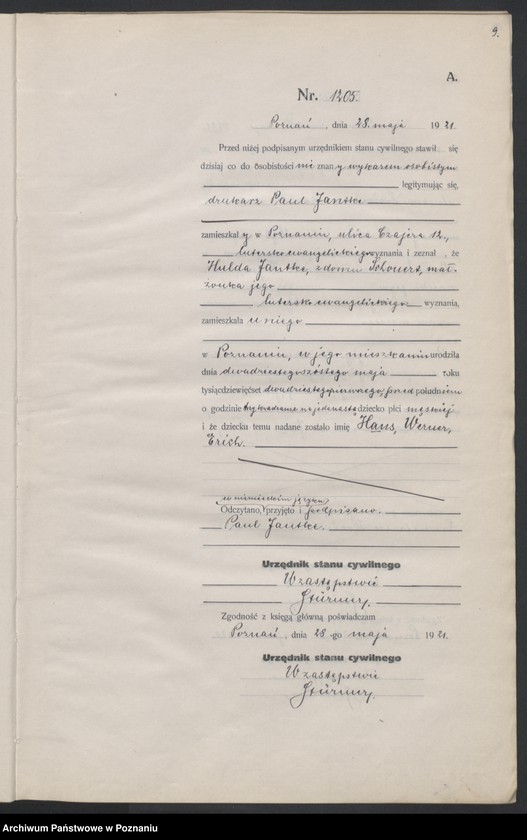 9.
A.
Nr. 1205.
Poznań, dnia 28. maja 1921.
Przed niżej podpisanym urzędnikiem stanu cywilnego stawił się
dzisiaj co do osobistości nie znany, wykazem osobistym
legitymując się,
drukarz Paul Jantke
zamieszkały w Poznaniu, ulica Czajcza 12,
lutersko ewangelickiego wyznania i zeznał, że
Hulda Jantke, z domu Schonert, mał-
żonka jego
lutersko ewangelickiego wyznania,
zamieszkała u niego
w Poznaniu, w jego mieszkaniu urodziła
dnia dwudziestegoszóstego maja roku
tysiącdziewięćset dwudziestegopierwszego, przed południem
o godzinie na jedenastą dziecko płci męskiej
i że dziecku temu nadane zostało imię Hans, Werner,
Erich.
w niemieckim języku
Odczytano, przyjęto i podpisano.
Paul Jantke.
Urzędnik stanu cywilnego
W zastępstwie
Stürmer.
Zgodność z księgą główną poświadczam
Poznań, dnia 28-go maja 1921.
Urzędnik stanu cywilnego
W zastępstwie
Stürmer.
Archiwum Państwowe w Poznaniu